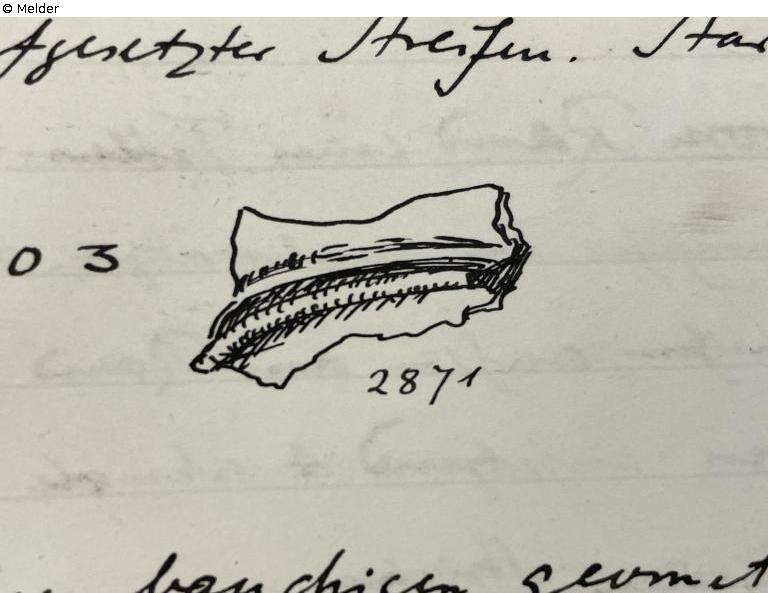 © Melder
fgesetzter Streifen. Star
0 3
2871
bauchigen geomet